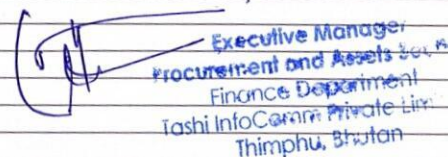 Executive Manager
Procurement and Assets
Finance Department
Tashi InfoComm Private
Thimphu, Bhutan